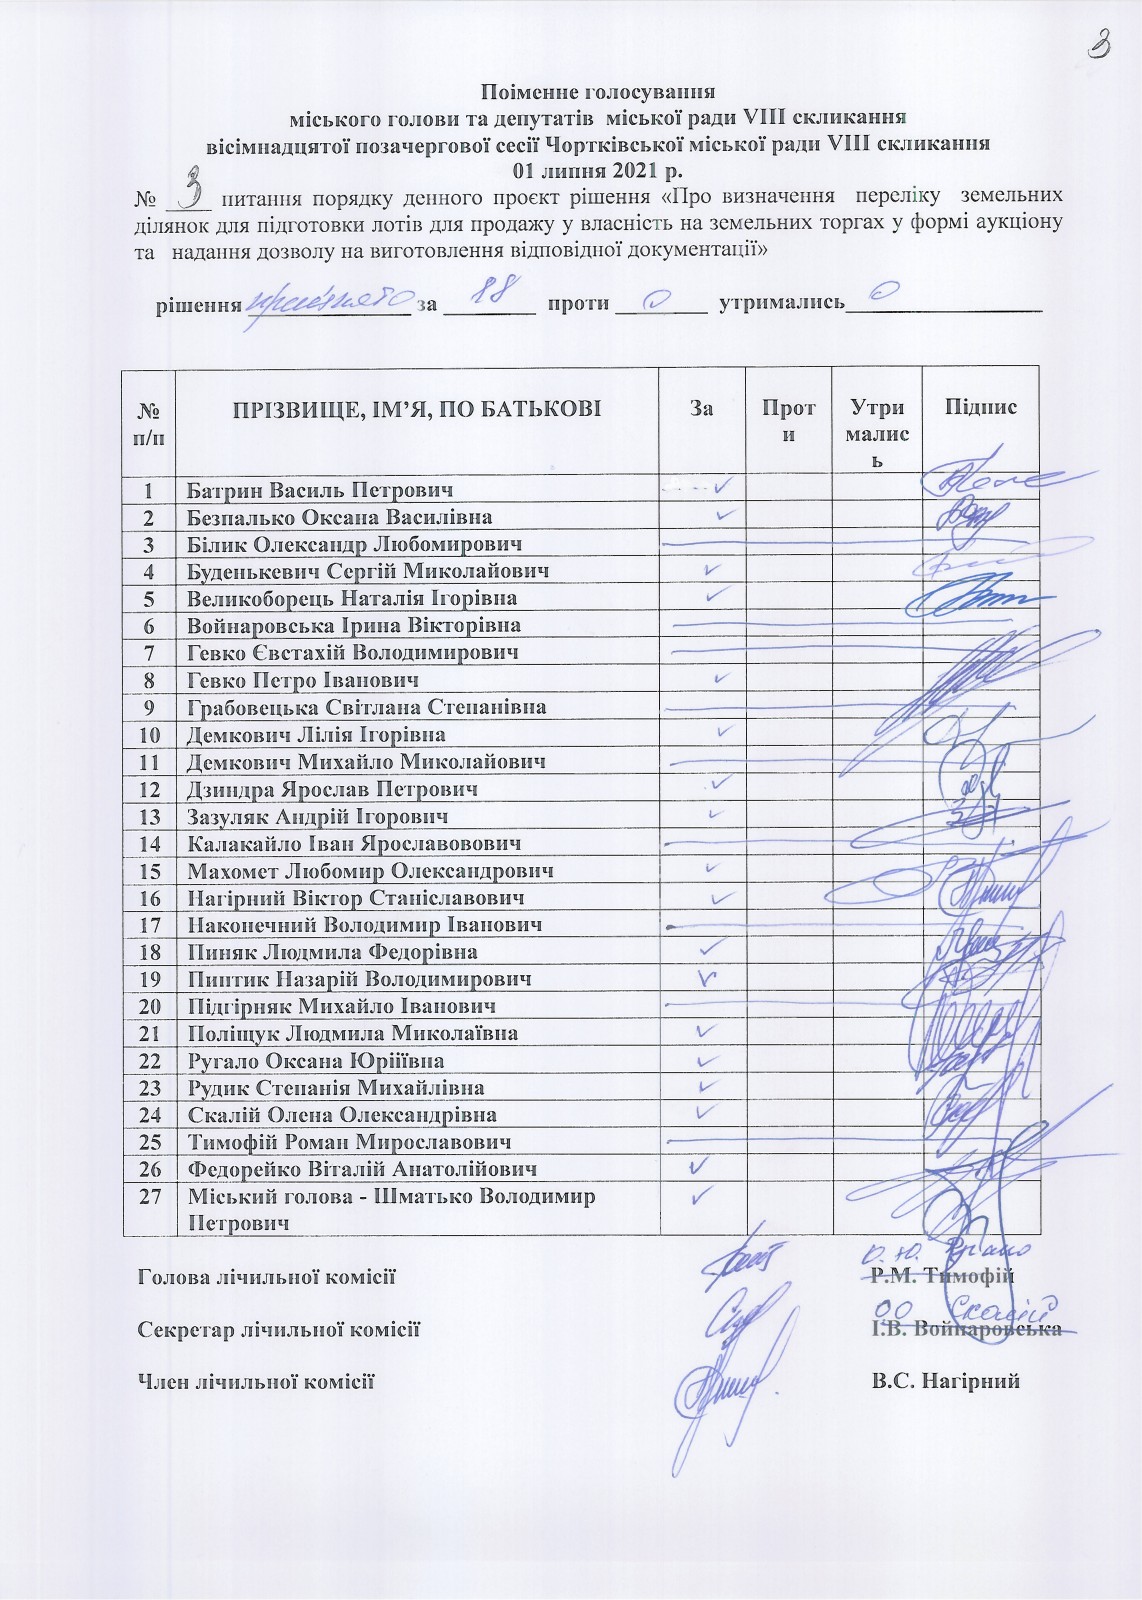 3
Поіменне голосування
міського голови та депутатів міської ради VIII скликання
вісімнадцятої позачергової сесії Чортківської міської ради VIII скликання
01 липня 2021 р.
№ 3 питання порядку денного проєкт рішення «Про визначення переліку земельних
ділянок для підготовки лотів для продажу у власність на земельних торгах у формі аукціону
та надання дозволу на виготовлення відповідної документації»
рішення прийнято за 18 проти 0 утримались 0
№ п/п ПРІЗВИЩЕ, ІМ’Я, ПО БАТЬКОВІ За Проти Утрималис ь Підпис
1 Батрин Василь Петрович
2 Безпалько Оксана Василівна
3 Білик Олександр Любомирович
4 Буденькевич Сергій Миколайович
5 Великоборець Наталія Ігорівна
6 Войнаровська Ірина Вікторівна
7 Гевко Євстахій Володимирович
8 Гевко Петро Іванович
9 Грабовецька Світлана Степанівна
10 Демкович Лілія Ігорівна
11 Демкович Михайло Миколайович
12 Дзиндра Ярослав Петрович
13 Зазуляк Андрій Ігорович
14 Калакайло Іван Ярославовович
15 Махомет Любомир Олександрович
16 Нагірний Віктор Станіславович
17 Наконечний Володимир Іванович
18 Пиняк Людмила Федорівна
19 Пиптик Назарій Володимирович
20 Підгірняк Михайло Іванович
21 Поліщук Людмила Миколаївна
22 Ругало Оксана Юріїівна
23 Рудик Степанія Михайлівна
24 Скалій Олена Олександрівна
25 Тимофій Роман Мирославович
26 Федорейко Віталій Анатолійович
27 Міський голова - Шматько Володимир
Петрович
Голова лічильної комісії Р.М. Тимофій
О.О. Скалій
Секретар лічильної комісії І.В. Войнаровська
Член лічильної комісії В.С. Нагірний